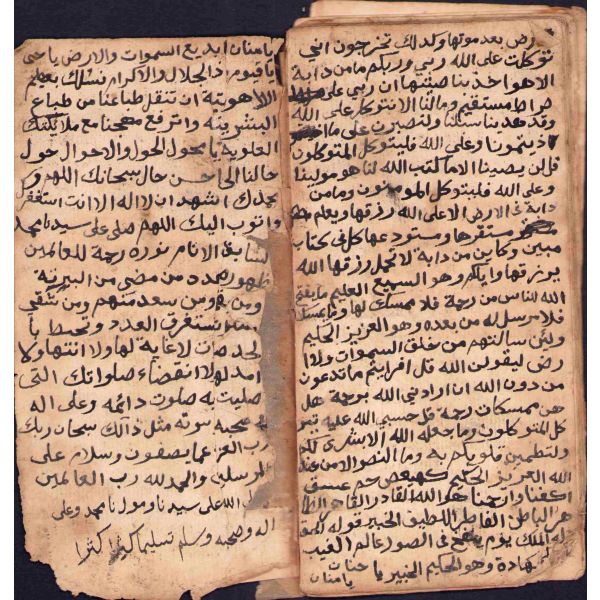 رض بعد موتها وكذلك تخرجون اني
توكلت على الله ربي وربكم ما من دابة
الا هو اخذ بناصيتها ان ربي على
صراط مستقيم ومالنا الا نتوكل على الله
وقد هدينا سبلنا ولنصبرن على ما
اذيتمونا وعلى الله فليتوكل المتوكلون
قل لن يصيبنا الا ما كتب الله لنا هو مولينا
وعلى الله فليتوكل المومنون وما من
دابة في الارض الا على الله رزقها ويعلم
مستقرها ومستودعها كل في كتاب
مبين وكاين من دابة لا تحمل رزقها الله
يرزقها واياكم وهو السميع العليم ما يفتح
الله للناس من رحمة فلا ممسك لها وما يمسك
فلا مرسل له من بعده وهو العزيز الحكيم
ولئن سالتهم من خلق السموات والا
رض ليقولن الله قل افرايتم ما تدعون
من دون الله ان ارادني الله برحمة هل
هن ممسكات رحمة قل حسبي الله عليه يتو
كل المتوكلون وما جعله الله الا بشرى لكم
ولتطمين قلوبكم به وما النصر الا من عند
الله العزيز الحكيم كهيعص حم عسق
اكفنا وارحمنا هو الله القادر القاهر الظا
هر الباطن الفاطر اللطيف الخبير قوله الحق
له الملك يوم ينفخ في الصور عالم الغيب
هادة وهو الحكيم الخبير يا حنان
يا منان
يا منان ابديع السموات والارض يا حي
يا قيوم ذ الجلال والاكرام نسلك بعظيم
اللاهوتية ان تنقل طباعنا من طباع
البشرية وا ترفع مهجنا مع ملائكتك
العلوية يا محول الحول والاحوال حول
حالنا الى احسن حال سبحانك اللهم و
بحمدك اشهد ان لا اله الا انت استغفر
واتوب اليك اللهم صلى على سيدنا محمد
سابق الانام نوره رحمة للعالمين
ظهوره عدد من مضى من البرية
ومن بقى ومن سعد منهم ومن شقي
صلاة تستغرق العدد وتحيط با
لحد صلات لا غاية لها ولا انتها ولا
امد لها ولا انقضاء صلواتك التى
صليت به صلوت دائمه وعلى اله
و صحبه مثل ذالك سبحان ربك
رب العز عما يصفون وسلام على
المرسلين والحمد لله رب العالمين
صلى الله على سيدنا ومولانا محمد وعلى
اله وصحبه وسلم تسليما كثيرا كثيرا